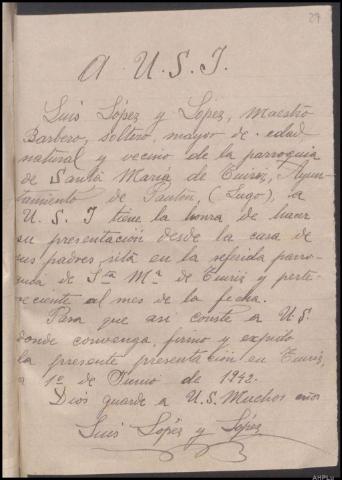 29
A U.S.I.
Luis López y López, Maestro
Barbero, soltero, mayor de edad,
natural y vecino de la parroquia
de Santa María de Eiriz, Ayun-
tamiento de Pantón, (Lugo), a
U.S.I tiene la honra de hacer
su presentación desde la casa de
sus padres sita en la referida parro-
quia de Sta Mª de Eiriz y perte-
neciente al mes de la fecha.
Para que asi conste a U.S.
donde convenga, firmo y expido
la presente presentación en Eiriz,
a 1º de Junio de 1942.
Dios guarde a U.S. Muchos años
Luis López y López
AHPLu